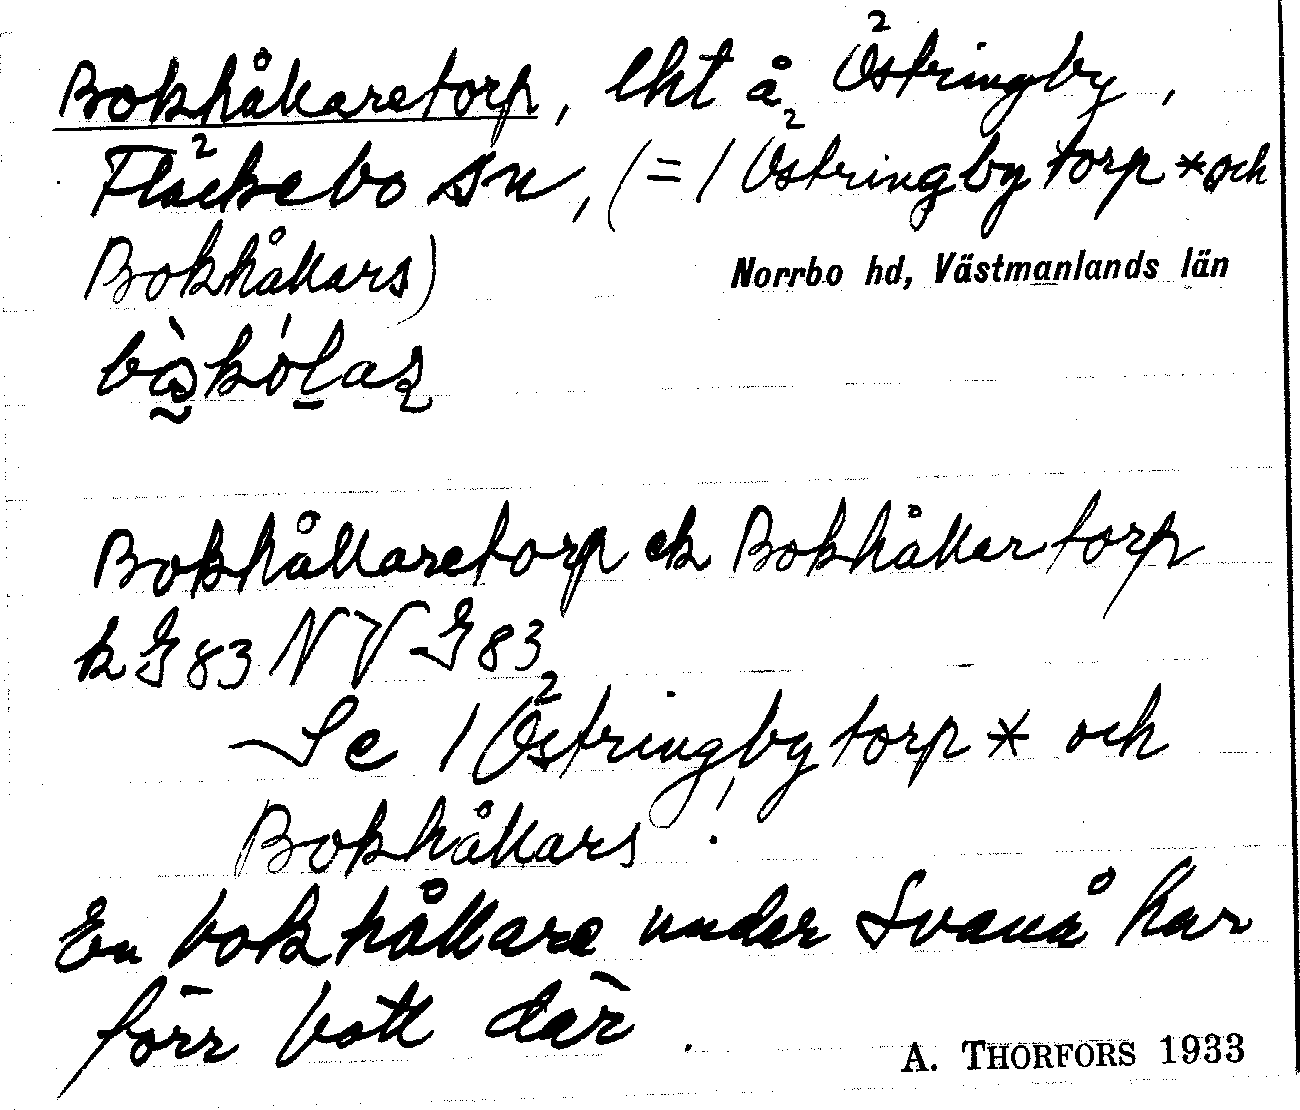 Bokhållaretorp, lht å Östringby,
Fläckebo sn, (= 1 Östringby torp * och
Bokhållars)
Norrbo hd, Västmanlands län
Bokhållaretorp ek Bokhållartorp
k G 83 NV G 83
Se 1 Östringby torp * och
Bokhållars !
En bokhållare under Svanå har
förr bott där.
A. THORFORS 1933